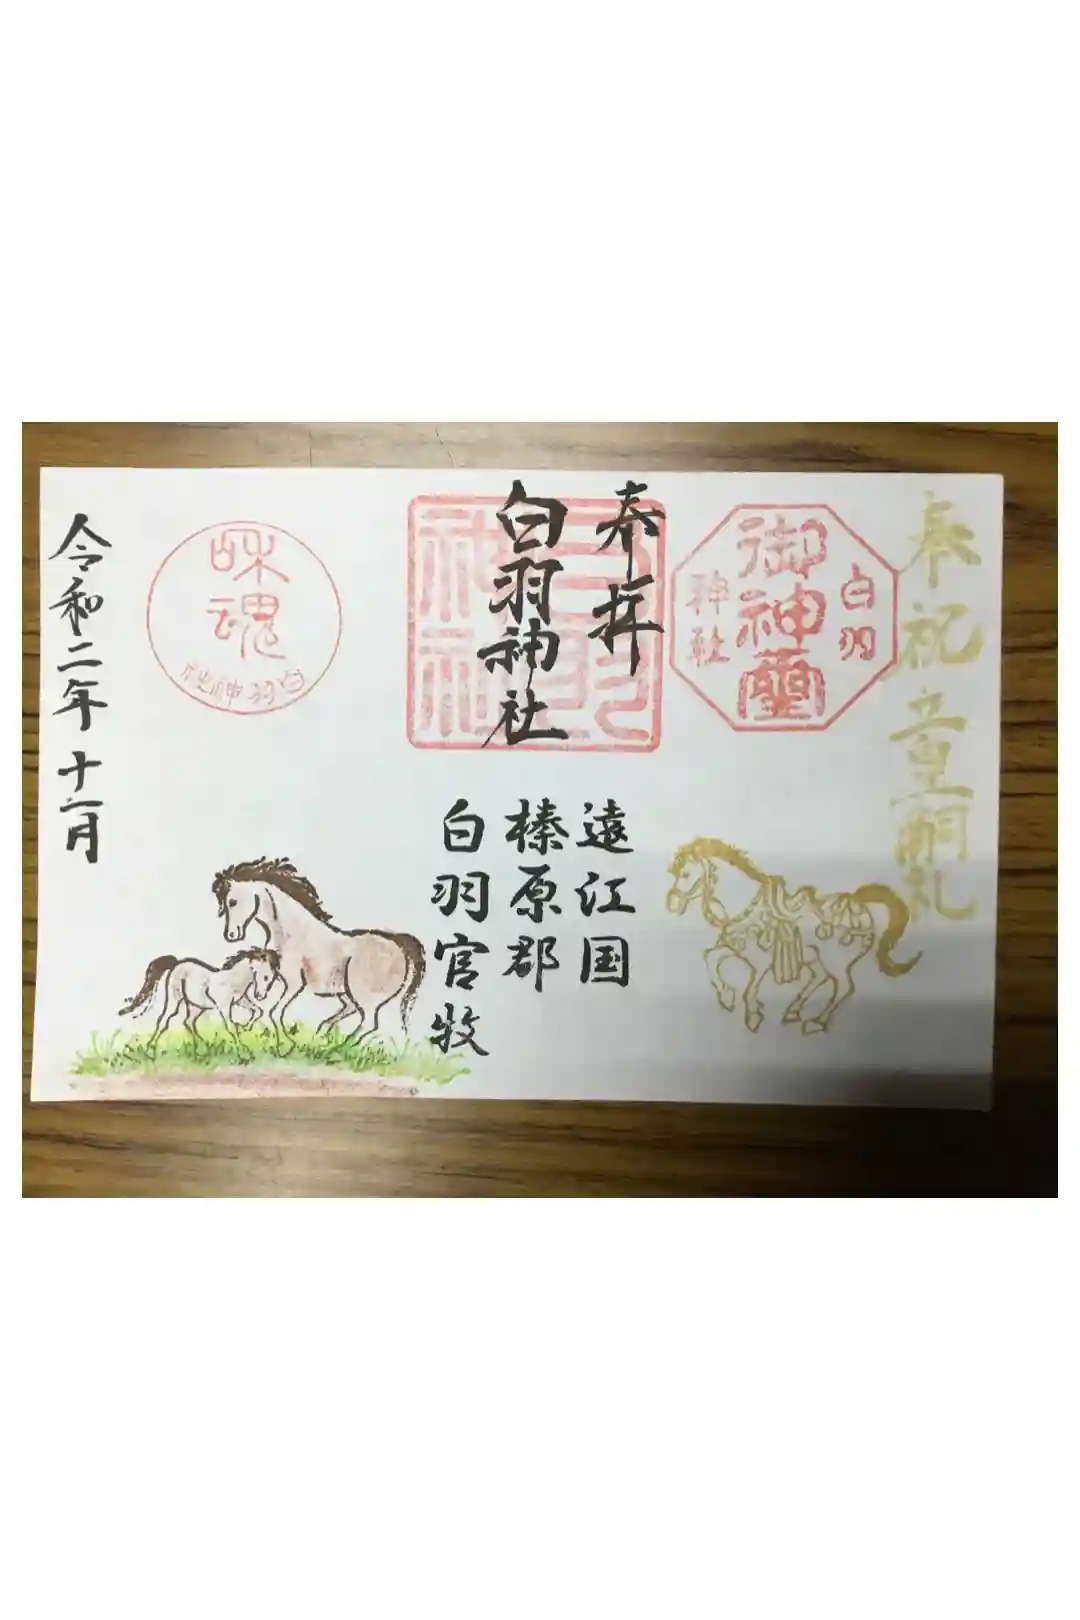 奉祝立皇嗣礼
白羽
御神璽
神社
奉拝
白羽神社
白羽神社
遠江国
榛原郡
白羽官牧
魂
白羽神社
令和二年十一月